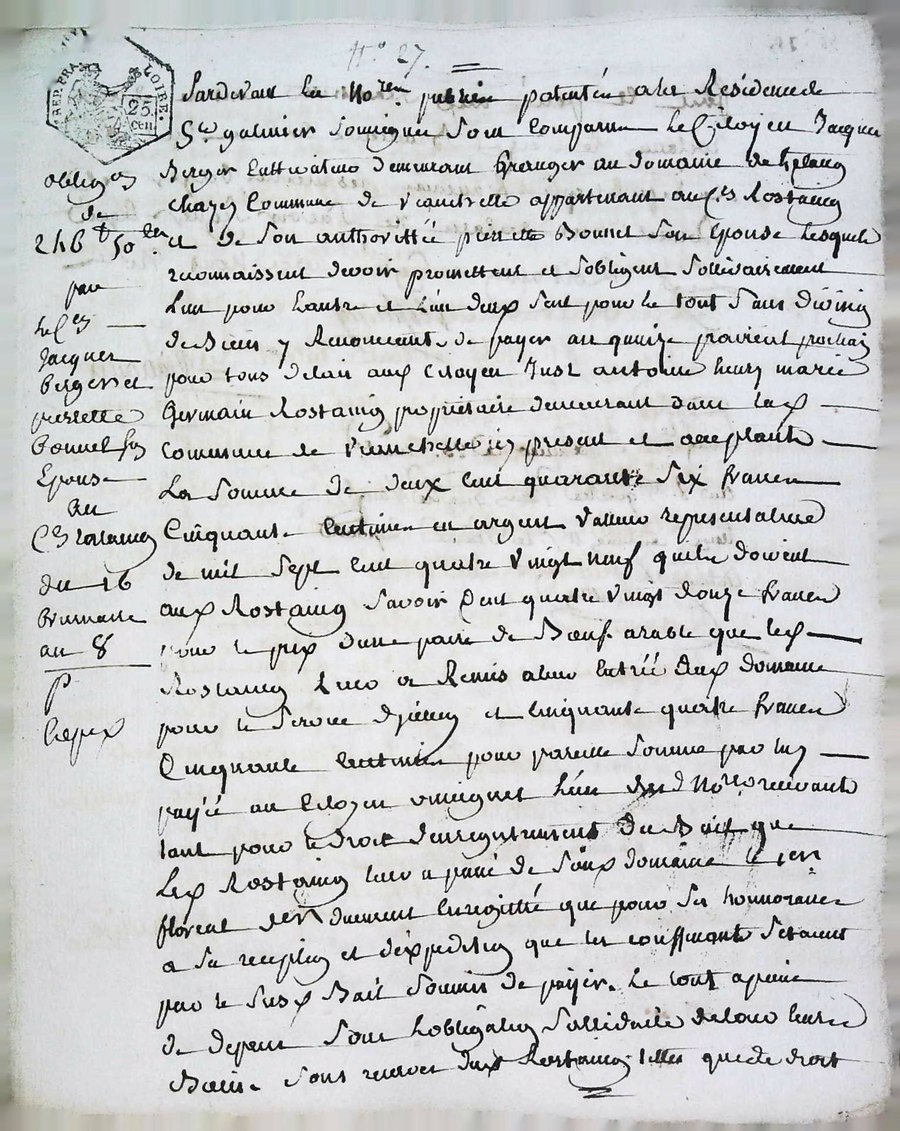 N.o 27.
REP. FRA LOIRE.
25 cen
Pardevant les No.res publics patentés a la Résidence de
St galmier soussignés sont comparus le Citoyen Jacques
Berger Cultivateur demeurant Granger au domaine de
chazey Commune de veauchette appartenant au C.en Rostaing
et de son authorittée pierrette Bonnet son Epouse lesquels
reconnaissent devoir promettent et sobligent sollidairement
Lun pour Lautre et Lun deux seul pour le tout sans division
de Biens y Renoncants de payer au quinze prairial prochain
pour tous delais aux Citoyen Just antoine henry marie
Germain Rostaing propriétaire demeurant dans lad
Commune de veauchette icy present et acceptant
La somme de deux Cent quarante six francs
Cinquante Centimes en argent valleur representative
de mil sept Cent quatre vingt neuf quils doivent
aud Rostaing Savoir Cent quatre vingt douze francs
pour le prix dune paire de Bœuf arable que led
Rostaing Leur a Remis a leur Entréé dud domaine
pour le service dicelluy et Cinquante quatre francs
Cinquante Centimes pour pareille somme par luy
payéé au Citoyen Lun desd No.res recevant
tant pour le droit denregistrement du Bail que
Led Rostaing leur a passé de sond domaine le 1er
floreal dernier duement Enregistré que pour les honnoraires
a sa reception et dexpedition que les confessants setaient
par le susd Bail soumis de payer. Le tout apeine
de depens sous Lobligation sollidaire de leurs
Biens. sous reserves dud Rostaing telles que de droit
obligaon
de
246 t 50 cen
par
les C.en
Jacques
berger et
pierrette
bonnet son
Epouse
au
C.en rostaing
du 16
brumaire
an 8
p
Exped